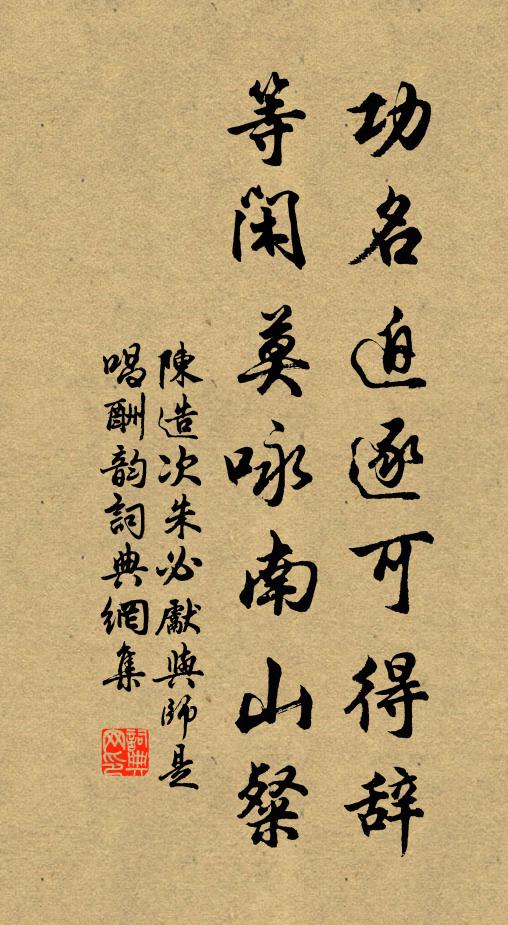 功名迫逐可得辞
等闲莫咏南山粲
陳造次朱必獻與師是
唱酬韵詞典網集
詞典網印